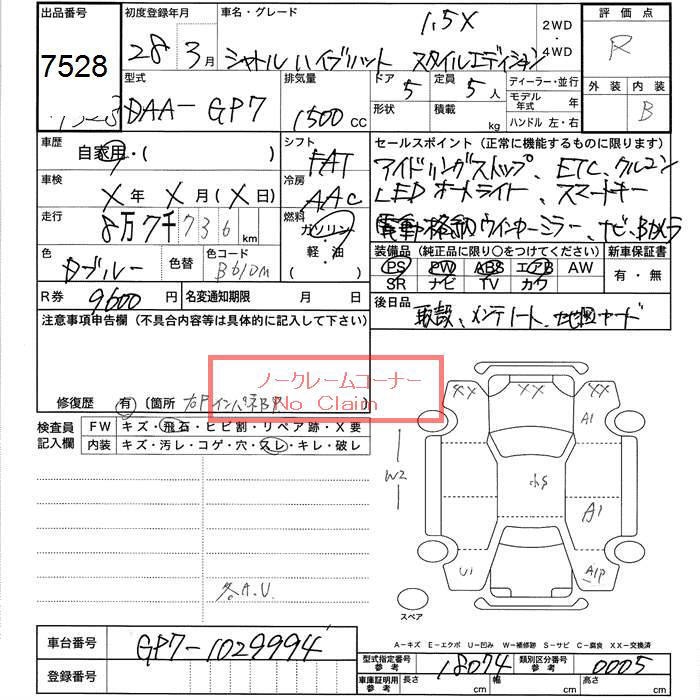 出品番号
7528
初度登録年月
28年 3月
車名・グレード
1.5X
シャトル ハイブリッド スタイルエディション
2WD
・
4WD
評価点
R
外装 内装
B
型式
DAA-GP7
排気量
1500 CC
ドア 5
形状
定員 5人
積載 kg
ディーラー・並行
モデル年式 年
ハンドル 左・右
車歴
自家用・( )
シフト
FAT
セールスポイント (正常に機能するものに限ります)
アイドリングストップ、ETC、クルコン
LEDオートライト、スマートキー
電動格納ウインカーミラー、ナビ、Bカメラ
車検
X年 X月(X日)
冷房
AAC
走行
8万7千736 km
燃料
ガソリン
・
軽・油
( )
装備品 (純正品に限り○をつけてください)
PS PW ABS エアB AW
SR ナビ TV カワ
新車保証書
有・無
色
Dブルー
色替
色コード
B610M
R券
9600円
名変通知期限 月 日
後日品
取説、メンテノート、
注意事項申告欄 (不具合内容等は具体的に記入して下さい)
ノークレームコーナー
No Claim
修復歴 有 (箇所 右Fインパネ
検査員
記入欄
FW キズ・飛石・ヒビ割・リペア跡・X要
内装 キズ・汚レ・コゲ・穴・スレ・キレ・破レ
XX XX XX
A1
W2
小S
A1
U1
A1P
各A.U.
スペア
A-キズ E-エクボ U-凹み W-補修跡 S-サビ C-腐食 XX-交換済
車台番号
GP7-1029994
登録番号
型式指定番号
参考
18074
類別区分番号
参考
0005
車庫証明用
参考
長さ cm 幅 cm 高さ cm